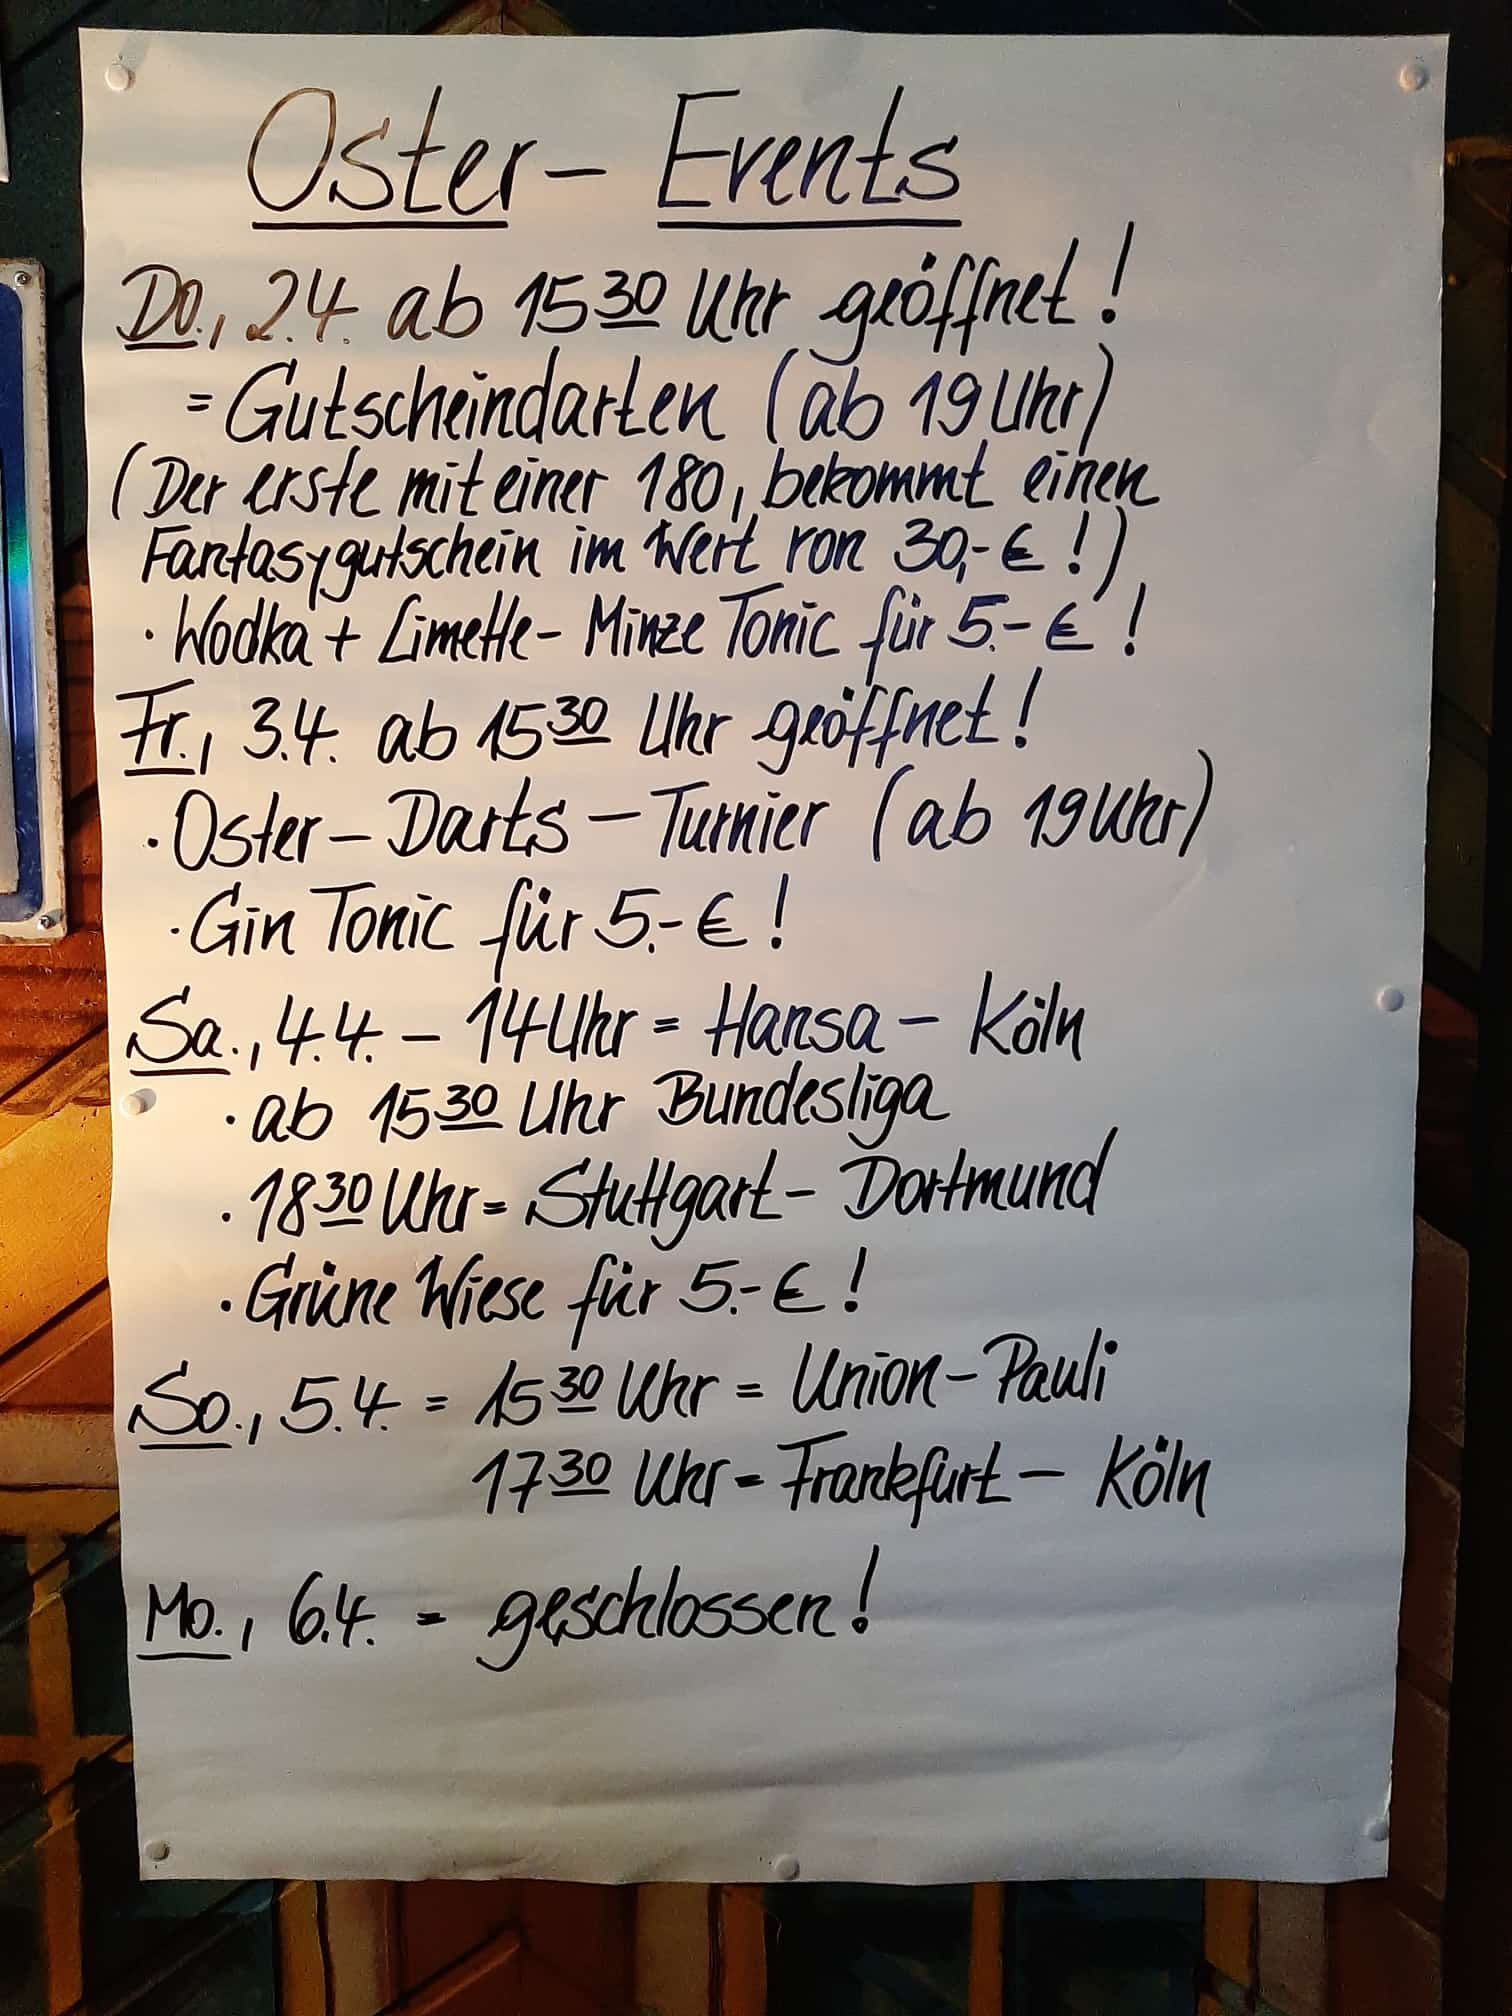 Oster - Events
Do., 2.4. ab 15 30 Uhr geöffnet!
= Gutscheindarten (ab 19 Uhr)
(Der erste mit einer 180, bekommt einen
Fantasygutschein im Wert von 30,- €!)
· Wodka + Limette - Minze Tonic für 5.- €!
Fr., 3.4. ab 15 30 Uhr geöffnet!
· Oster - Darts - Turnier (ab 19 Uhr)
· Gin Tonic für 5.- €!
Sa., 4.4. - 14 Uhr = Hansa - Köln
· ab 15 30 Uhr Bundesliga
· 18 30 Uhr = Stuttgart - Dortmund
· Grüne Wiese für 5.- €!
So., 5.4. = 15 30 Uhr = Union - Pauli
17 30 Uhr = Frankfurt - Köln
Mo., 6.4. = geschlossen!